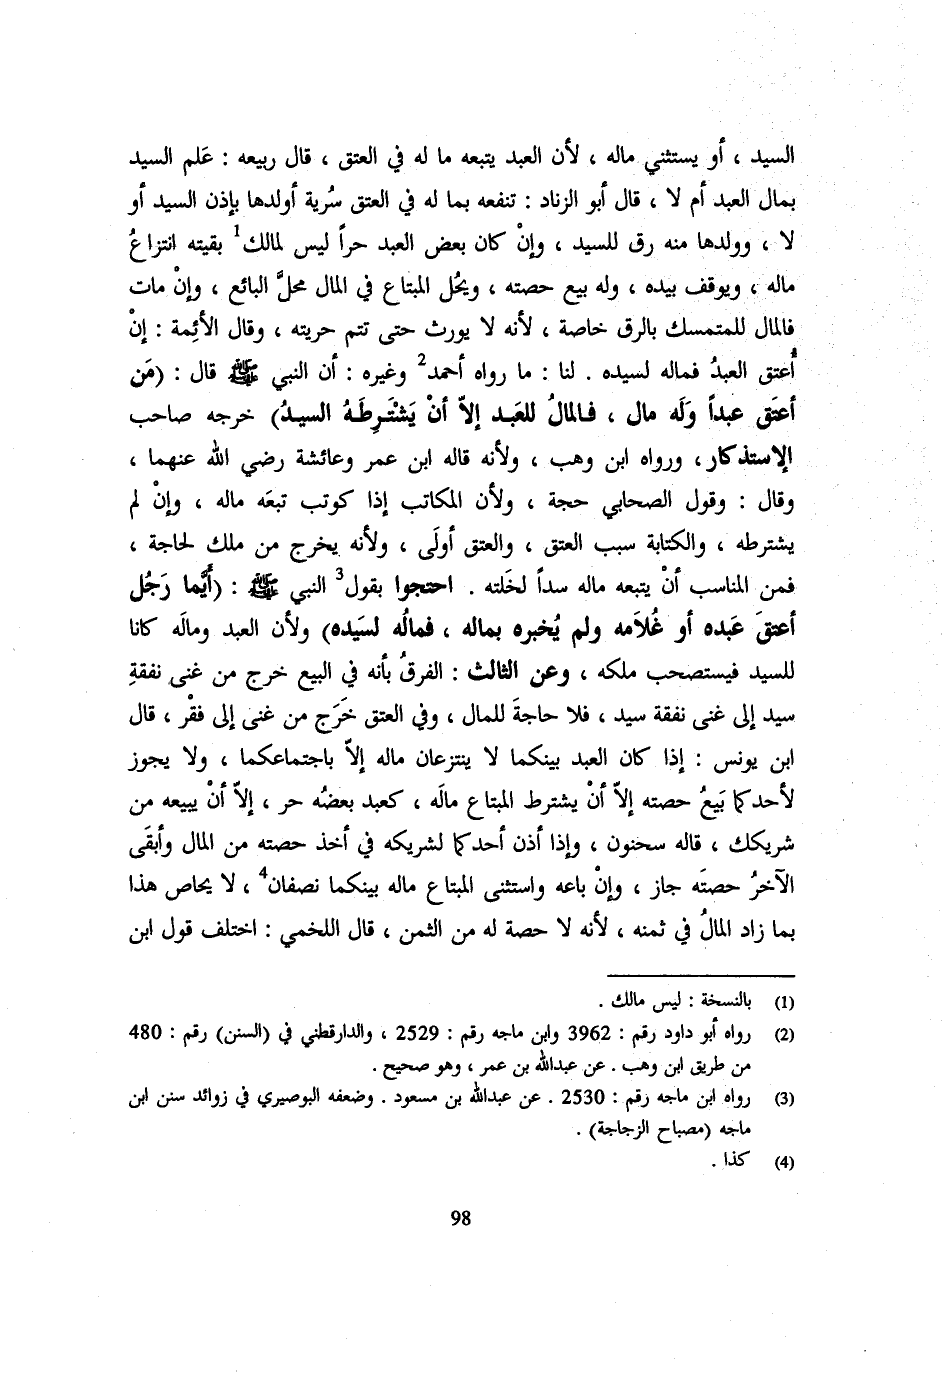 السيد ، أو يستثني ماله ، لأن العبد يتبعه ما له في العتق ، قال ربيعه : عَلم السيد
بمال العبد أم لا ، قال أبو الزناد : تنفعه بما له في العتق سُرية أولدها بإذن السيد أو
لا ، وولدها منه رق للسيد ، وإنْ كان بعض العبد حراً ليس لمالك1 بقيته انتزاعُ
ماله ، ويوقف بيده ، وله بيع حصته ، ويحُل المبتاع في المال محلَّ البائع ، وإنْ مات
فالمال للمتمسك بالرق خاصة ، لأنه لا يورث حتى تتم حريته ، وقال الأئِمة : إنْ
أُعتق العبدُ فماله لسيده . لنا : ما رواه أحمد2 وغيره : أن النبي ﷺ قال : (مَن
أعتَق عبداً وَله مال ، فـالمالُ للعَبـد إلاّ أنْ يَشْتَـرِطَـهُ السيـدُ) خرجه صاحب
الإستذكار، ورواه ابن وهب ، ولأنه قاله ابن عمر وعائشة رضي الله عنهما ،
وقال : وقول الصحابي حجة ، ولأن المكاتب إذا كوتب تبعَه ماله ، وإنْ لم
يشترطه ، والكتابة سبب العتق ، والعتق أولَى ، ولأنه يخرج من ملك لحاجة ،
فمن المناسب أنْ يتبعه ماله سداً لخَلته . احتجوا بقول3 النبي ﷺ : (أَيُّما رَجُل
أعتقَ عَبده أو غُلاَمه ولم يُخبره بماله ، فمالُه لسَيده) ولأن العبد ومالَه كانا
للسيد فيستصحب ملكه ، وعن الثالث : الفرقُ بأنه في البيع خرج من غنى نفقةِ
سيد إلى غنى نفقة سيد ، فلا حاجةَ للمال ، وفي العتق خَرَج من غنى إلى فقْر ، قال
ابن يونس : إذا كان العبد بينكما لا ينتزعان ماله إلاّ باجتماعكما ، ولا يجوز
لأحدكما بَيعُ حصته إلاّ أنْ يشترط المبتاع مالَه ، كعبد بعضُه حر ، إلاّ أنْ يبيعه من
شريكك ، قاله سحنون ، وإذا أذن أحدكما لشريكه في أخذ حصته من المال وأبقَى
الآخرُ حصتَه جاز ، وإنْ باعه واستثنى المبتاع ماله بينكما نصفان4 ، لا يحاص هذا
بما زاد المالُ في ثمنه ، لأنه لا حصة له من الثمن ، قال اللخمي : اختلف قول ابن
(1) بالنسخة : ليس مالك .
(2) رواه أبو داود رقم : 3962 وابن ماجه رقم : 2529 ، والدارقطني في (السنن) رقم : 480
من طريق ابن وهب . عن عبدالله بن عمر ، وهو صحيح .
(3) رواه ابن ماجه رقم : 2530 . عن عبدالله بن مسعود . وضعفه البوصيري في زوائد سنن ابن
ماجه (مصباح الزجاجة) .
(4) كذا .
98